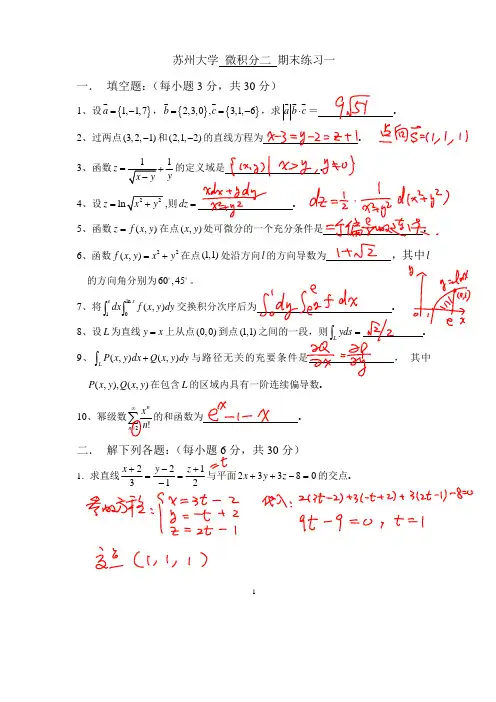 苏州大学 微积分二 期末练习一
一． 填空题：（每小题3分，共30分）
1、设 a = {1,-1,7}， b = {2,3,0}, c = {3,1,-6}，求 |a| b·c = 9√51 ．
2、过两点(3,2,-1)和(2,1,-2)的直线方程为 x-3=y-2=z+1 ． 点向 s=(1,1,1)
3、函数 z = 1/√(x-y) + 1/y 的定义域是 {(x,y) | x>y, y≠0} ．
4、设 z = ln√(x²+y²) ,则 dz = (xdx+ydy)/(x²+y²) ． dz = 1/2 · 1/(x²+y²) d(x²+y²)
5、函数 z = f(x,y) 在点(x,y)处可微分的一个充分条件是 一阶偏导连续 ．
6、函数 f(x,y) = x² + y² 在点(1,1)处沿方向 l 的方向导数为 1+√2 ，其中 l
的方向角分别为60°,45°。
7、将 ∫₁ᵉ dx ∫₀^(ln x) f(x,y)dy 交换积分次序后为 ∫₀¹ dy ∫_(e^y)^e f dx ． y y=lnx (e,1) 0 1 e x
8、设 L 为直线 y = x 上从点(0,0)到点(1,1)之间的一段，则 ∫_L yds = √2/2 ．
9、 ∫_L P(x,y)dx + Q(x,y)dy 与路径无关的充要条件是 ∂Q/∂x = ∂P/∂y ， 其中
P(x,y),Q(x,y) 在包含 L 的区域内具有一阶连续偏导数．
10、幂级数 ∑_(n=2)^∞ xⁿ/n! 的和函数为 eˣ-1-x ．
二． 解下列各题：（每小题6分，共30分）
1．求直线 (x+2)/3 = (y-2)/(-1) = (z+1)/2 =t 与平面 2x+3y+3z-8=0 的交点．
参数方程: { x=3t-2 代入: 2(3t-2)+3(-t+2)+3(2t-1)-8=0
y=-t+2 9t-9=0, t=1
z=2t-1
交点 (1,1,1)
1